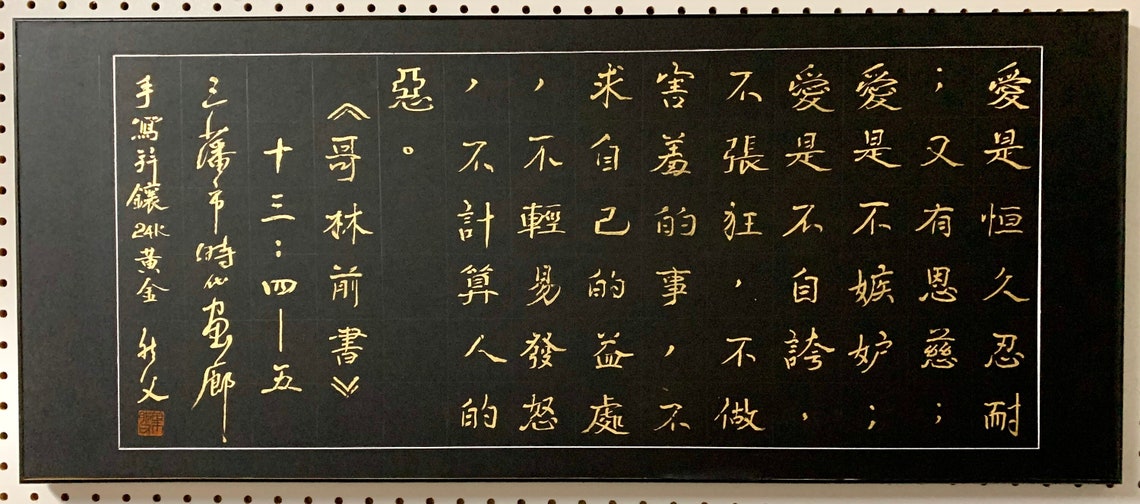 愛是恒久忍耐
；又有恩慈；
愛是不嫉妒；
愛是不自誇，
不張狂，不做
害羞的事，不
求自己的益處
，不輕易發怒
，不計算人的
惡。
《哥林前書》
十三：四—五
三藩市時代画廊
手寫并鑲24K黃金 父